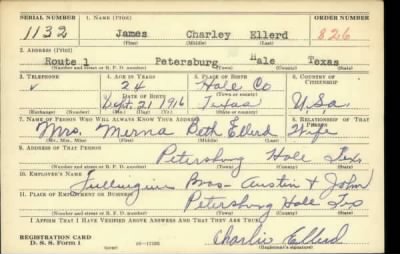 SERIAL NUMBER 1. NAME (Print) ORDER NUMBER
1132 James Charley Ellerd 826
(First) (Middle) (Last)
2. ADDRESS (Print)
Route 1 Petersburg Hale Texas
(Number and street or R. F. D. number) (Town) (County) (State)
3. TELEPHONE 4. AGE IN YEARS 5. PLACE OF BIRTH 6. COUNTRY OF CITIZENSHIP
24 Hale Co
DATE OF BIRTH (Town or county)
Sept. 21 1916 Texas USa
(Exchange) (Number) (Mo.) (Day) (Yr.) (State or country)
7. NAME OF PERSON WHO WILL ALWAYS KNOW YOUR ADDRESS 8. RELATIONSHIP OF THAT PERSON
Mrs. Murna Beth Ellerd Wife
(Mr., Mrs., Miss) (First) (Middle) (Last)
9. ADDRESS OF THAT PERSON
Petersburg Hale Tex
(Number and street or R. F. D. number) (Town) (County) (State)
10. EMPLOYER'S NAME
Bros - Austin + John
11. PLACE OF EMPLOYMENT OR BUSINESS
Petersburg Hale Tex
(Number and street or R. F. D. number) (Town) (County) (State)
I AFFIRM THAT I HAVE VERIFIED ABOVE ANSWERS AND THAT THEY ARE TRUE.
REGISTRATION CARD
D. S. S. Form 1 Charlie Ellerd
(Registrant's signature)